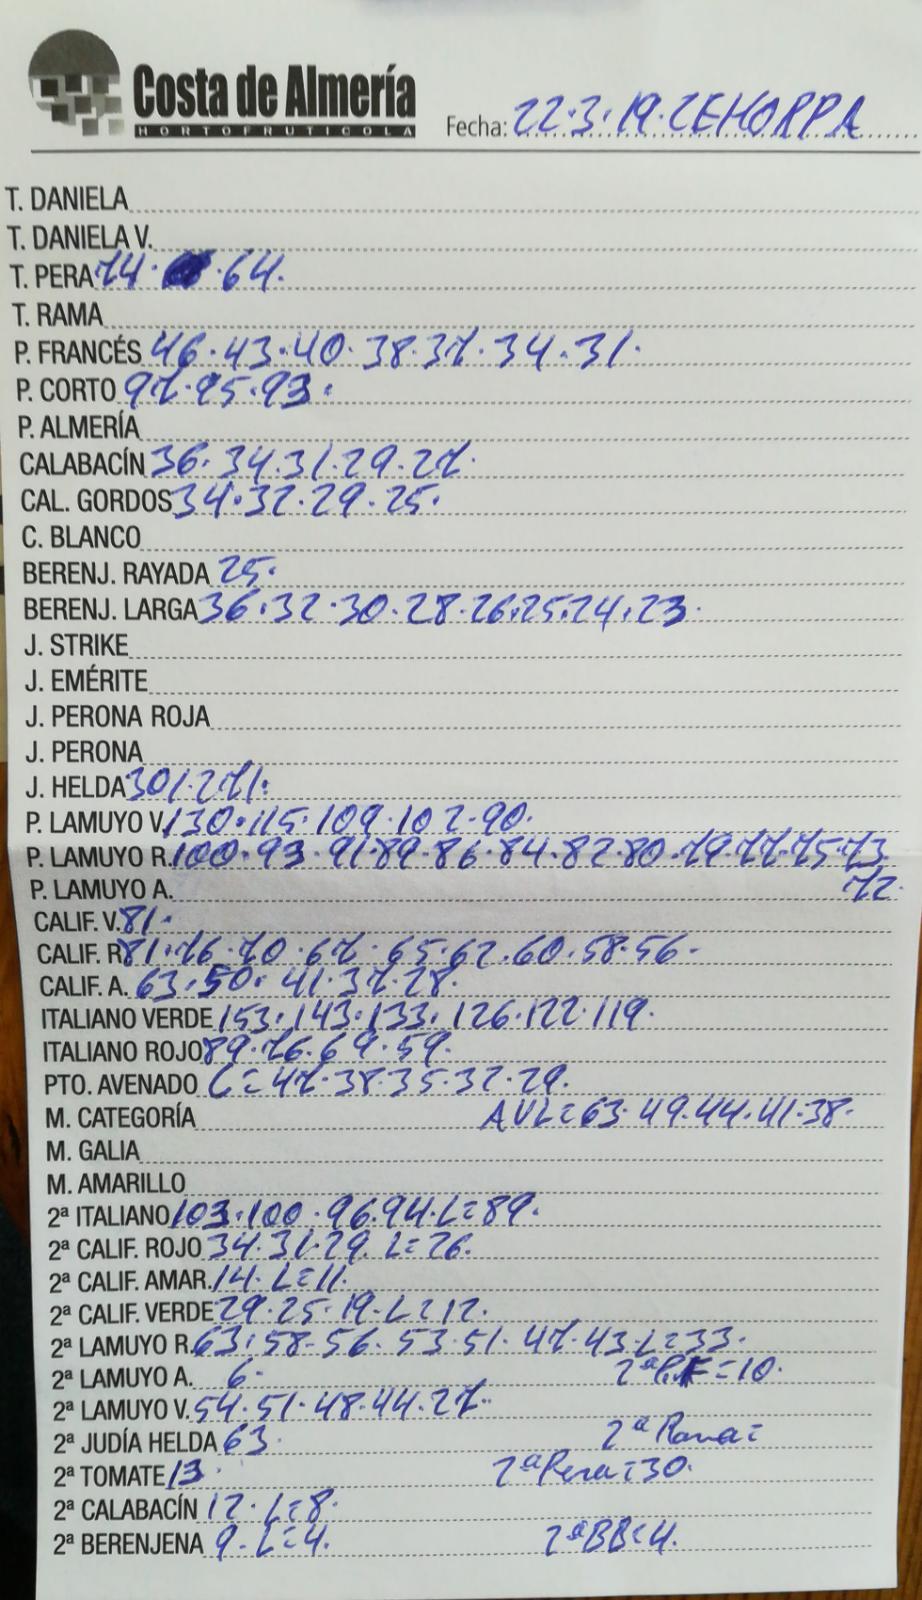 Costa de Almería
HORTOFRUTICOLA
Fecha: 22.3.19. ZEHORPA
T. DANIELA
T. DANIELA V.
T. PERA 74. . 64.
T. RAMA
P. FRANCÉS 46.43.40.38.37.34.31.
P. CORTO 97.95.93.
P. ALMERÍA
CALABACÍN 36.34.31.29.27.
CAL. GORDOS 34.32.29.25.
C. BLANCO
BERENJ. RAYADA 25.
BERENJ. LARGA 36.32.30.28.26.25.24.23.
J. STRIKE
J. EMÉRITE
J. PERONA ROJA
J. PERONA
J. HELDA 301.271.
P. LAMUYO V. 130.115.109.102.90.
P. LAMUYO R. 100.93.91.89.86.84.82.80.79.77.75.73.
P. LAMUYO A. 72.
CALIF. V. 81.
CALIF. R 81.76.70.67.65.62.60.58.56.
CALIF. A. 63.50.41.37.28.
ITALIANO VERDE 153.143.133.126.122.119.
ITALIANO ROJO 89.76.69.59.
PTO. AVENADO L=47.38.35.32.29.
M. CATEGORÍA AVL=63.49.44.41.38.
M. GALIA
M. AMARILLO
2ª ITALIANO 103.100.96.94.L=89.
2ª CALIF. ROJO 34.31.29. L=26.
2ª CALIF. AMAR. 14. L=11.
2ª CALIF. VERDE 29.25.19.L=12.
2ª LAMUYO R. 63.58.56.53.51.47.43.L=33.
2ª LAMUYO A. 6. 2ªP.F=10.
2ª LAMUYO V. 54.51.48.44.27.
2ª JUDÍA HELDA 63. 2ª Rama=
2ª TOMATE 13. 2ª Pera=30.
2ª CALABACÍN 12. L=8.
2ª BERENJENA 9. L=4. 2ªBB=4.